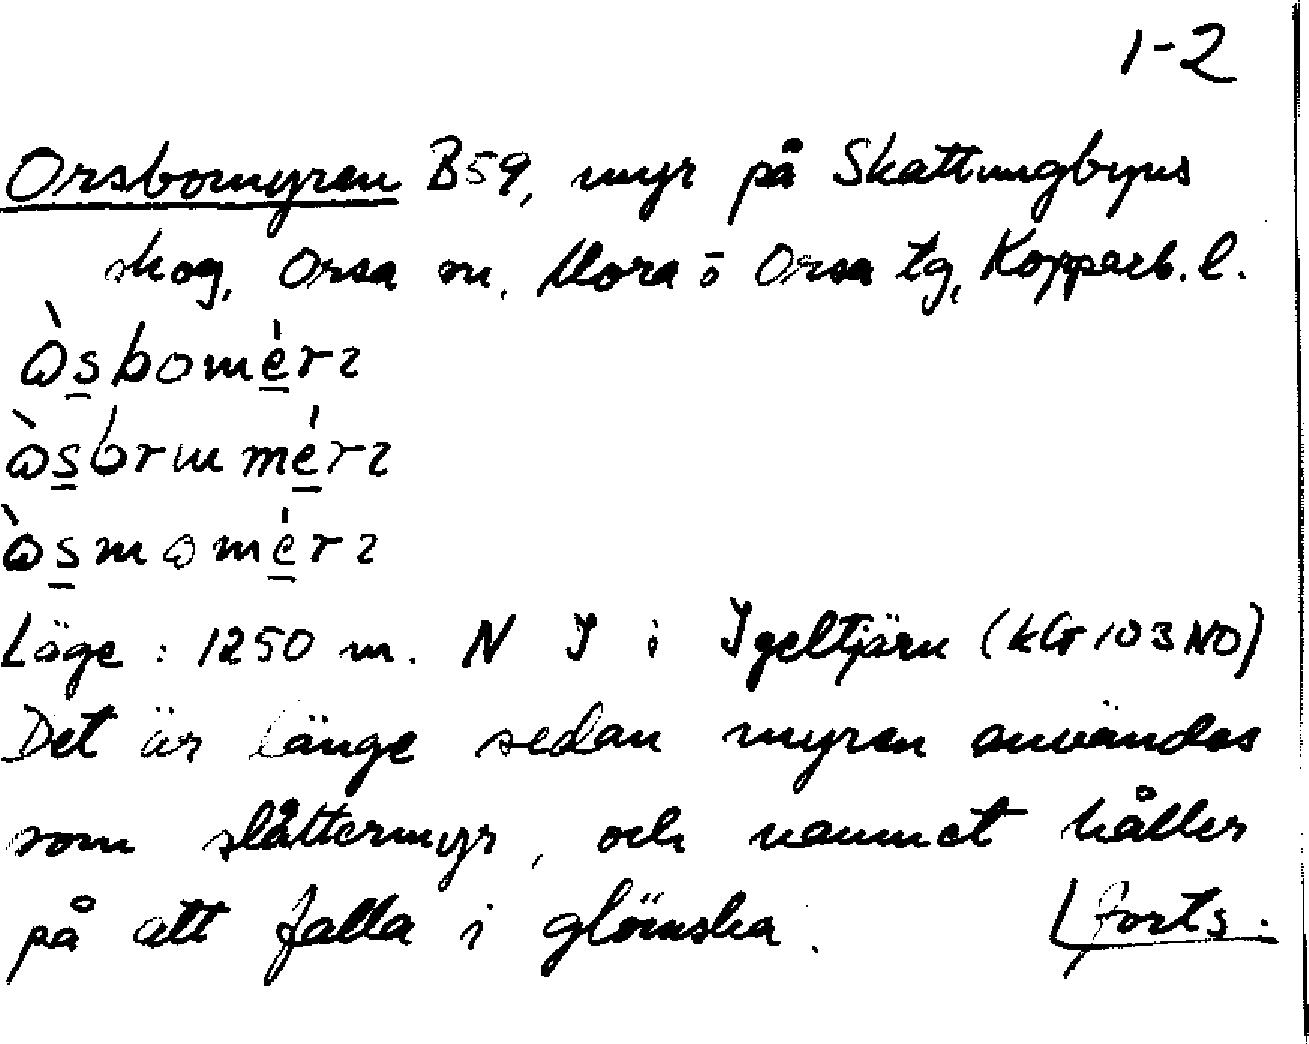 1-2
Orsbomyren B59, myr på Skattungbyns
skog, Orsa sn. Mora o Orsa tg, Kopparb. l.
Läge: 1250 m. N I i Igeltjärn (kG 103 NO)
Det är länge sedan myren användes
som slåttermyr, och namnet håller
på att falla i glömska. forts.